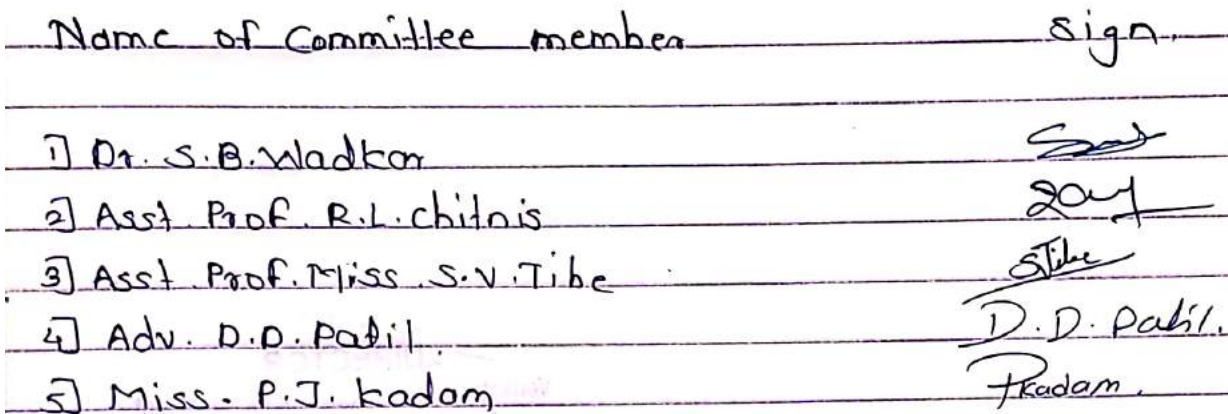 Name of Committee member sign.
1] Dr. S.B. Wadkar
2] Asst. Prof. R.L. chitnis
3] Asst. Prof. Miss. S.V. Tibe STibe
4] Adv. D.D. Patil. D.D. Patil.
5] Miss. P.J. kadam Pkadam.